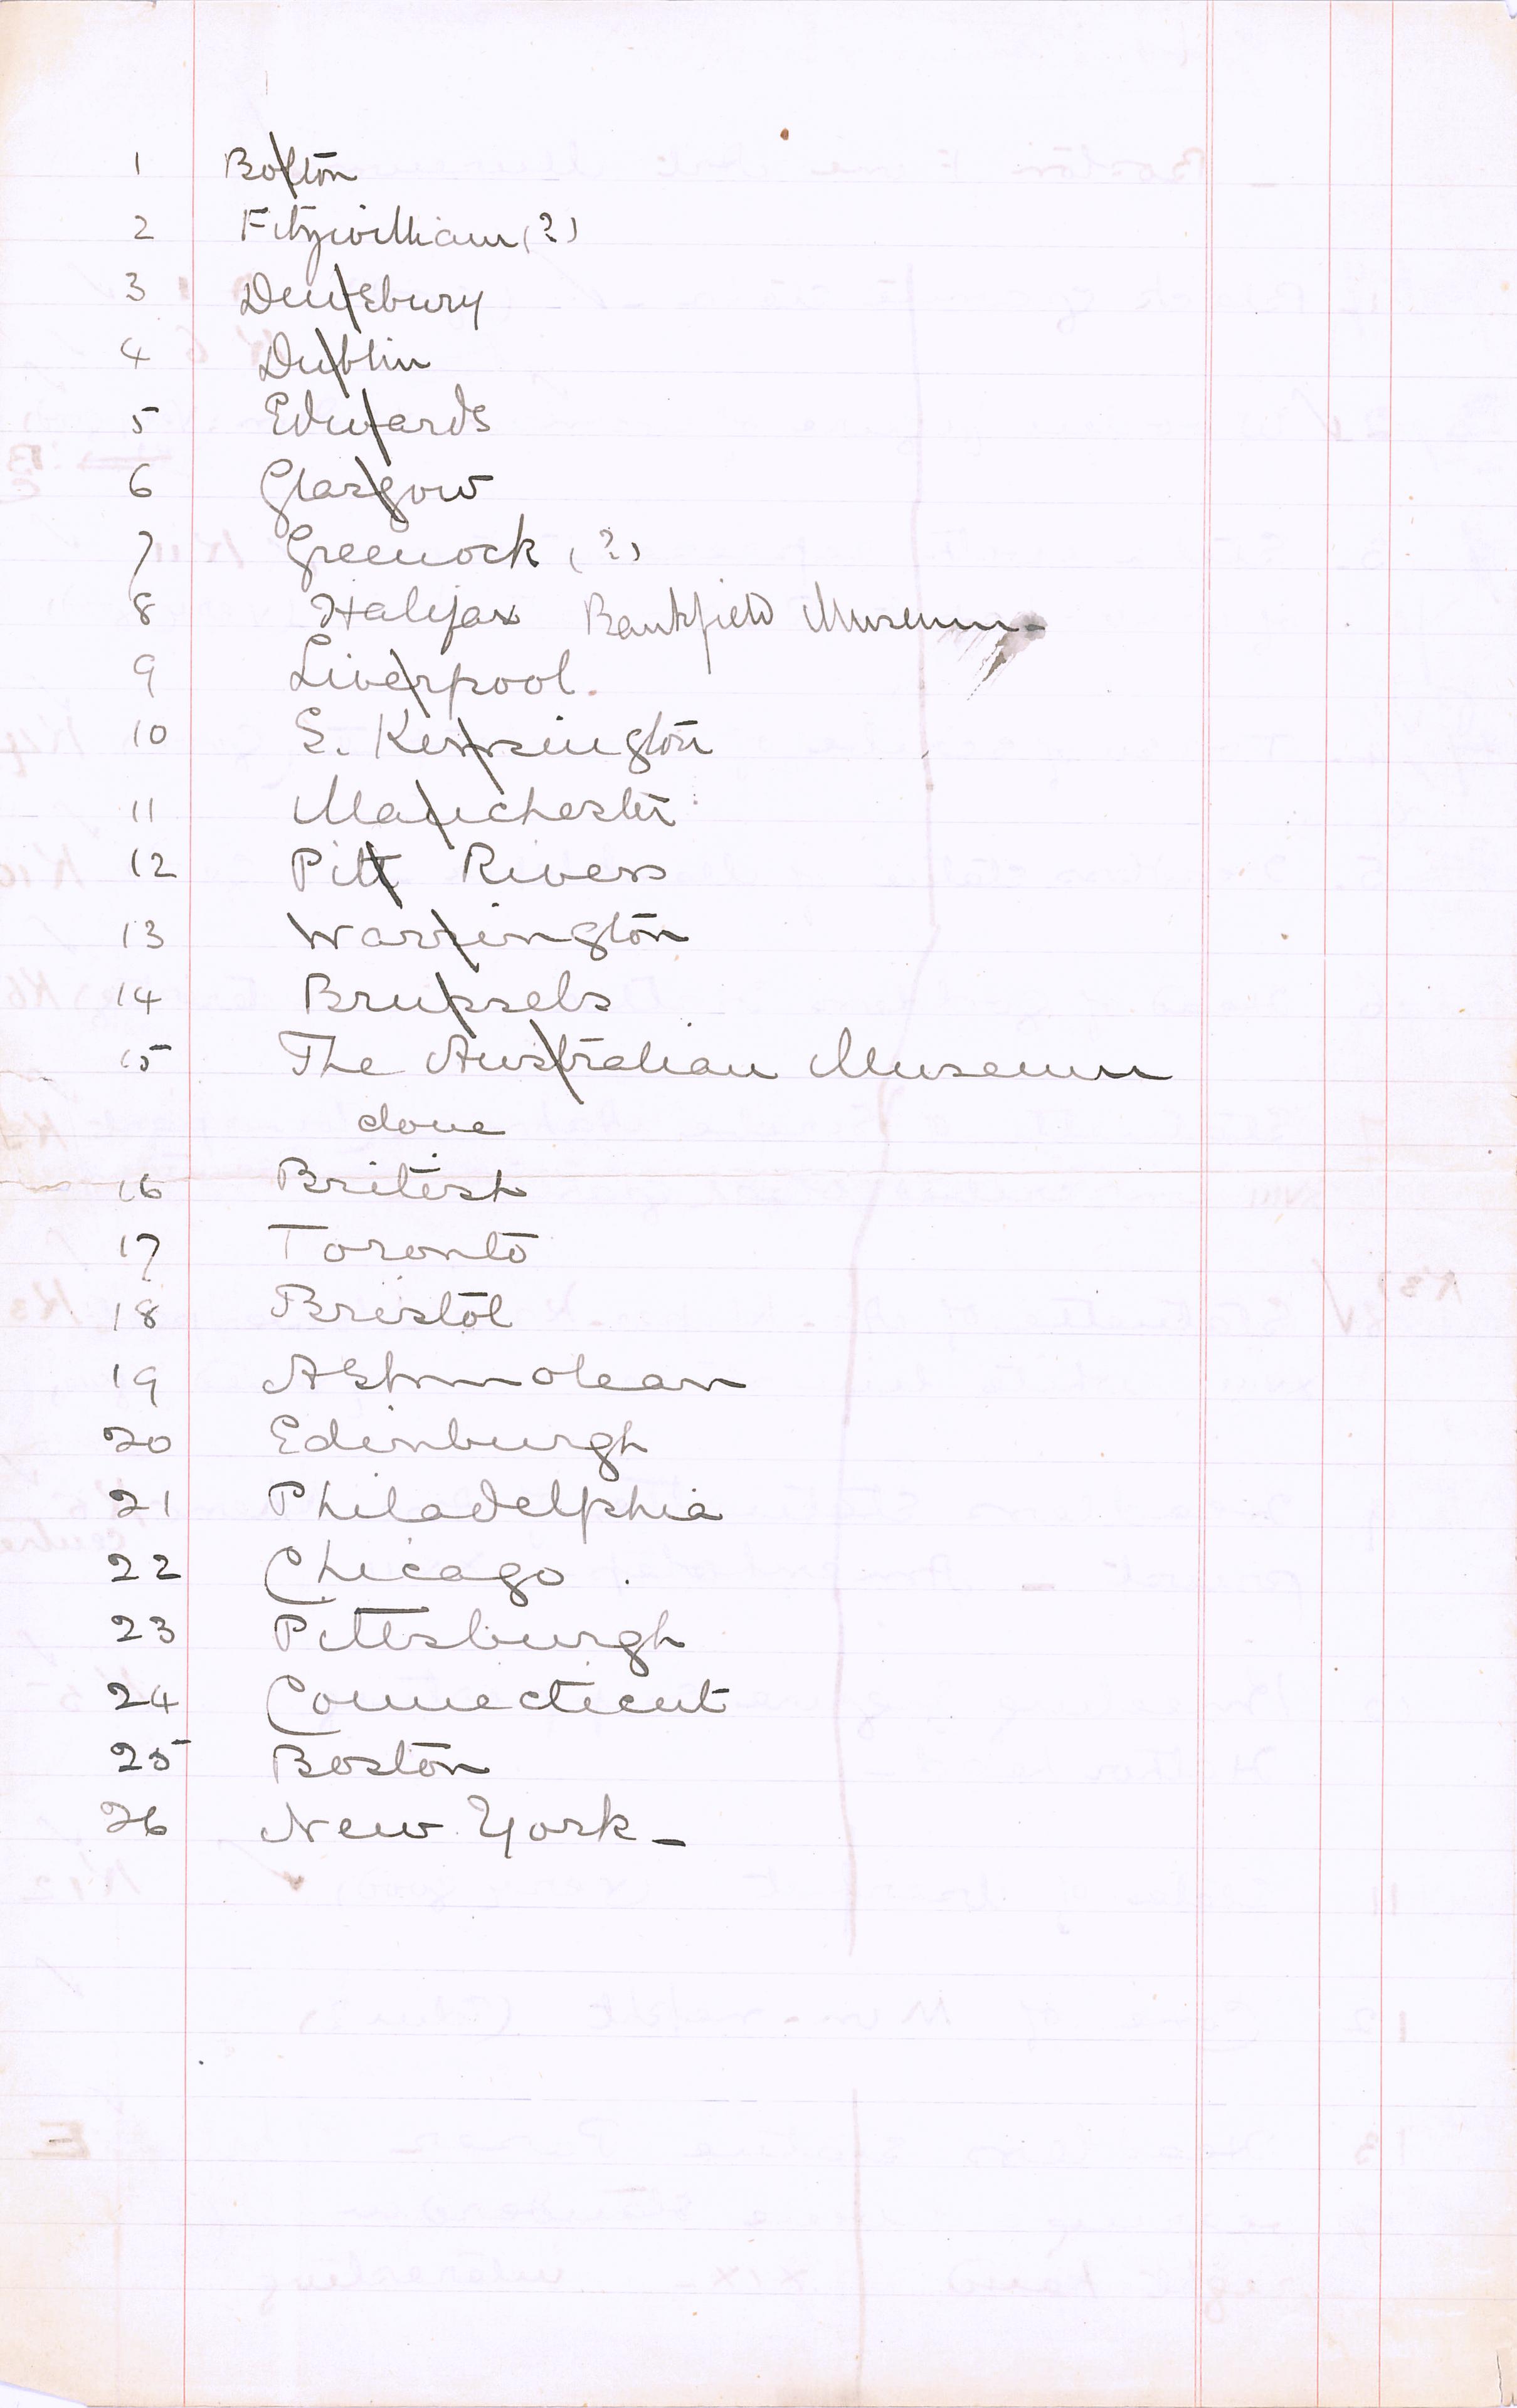 1 Bolton
2 Fitzwilliam (?)
3 Dewsbury
4 Dublin
5 Edwards
6 Glasgow
7 Greenock (?)
8 Halifax Bankfield Museum-
9 Liverpool.
10 S. Kensington
11 Manchester
12 Pitt Rivers
13 Warrington
14 Brussels
15 The Australian Museum
done
16 British
17 Toronto
18 Bristol
19 Ashmolean
20 Edinburgh
21 Philadelphia
22 Chicago.
23 Pittsburgh
24 Connecticut
25 Boston
26 New York-